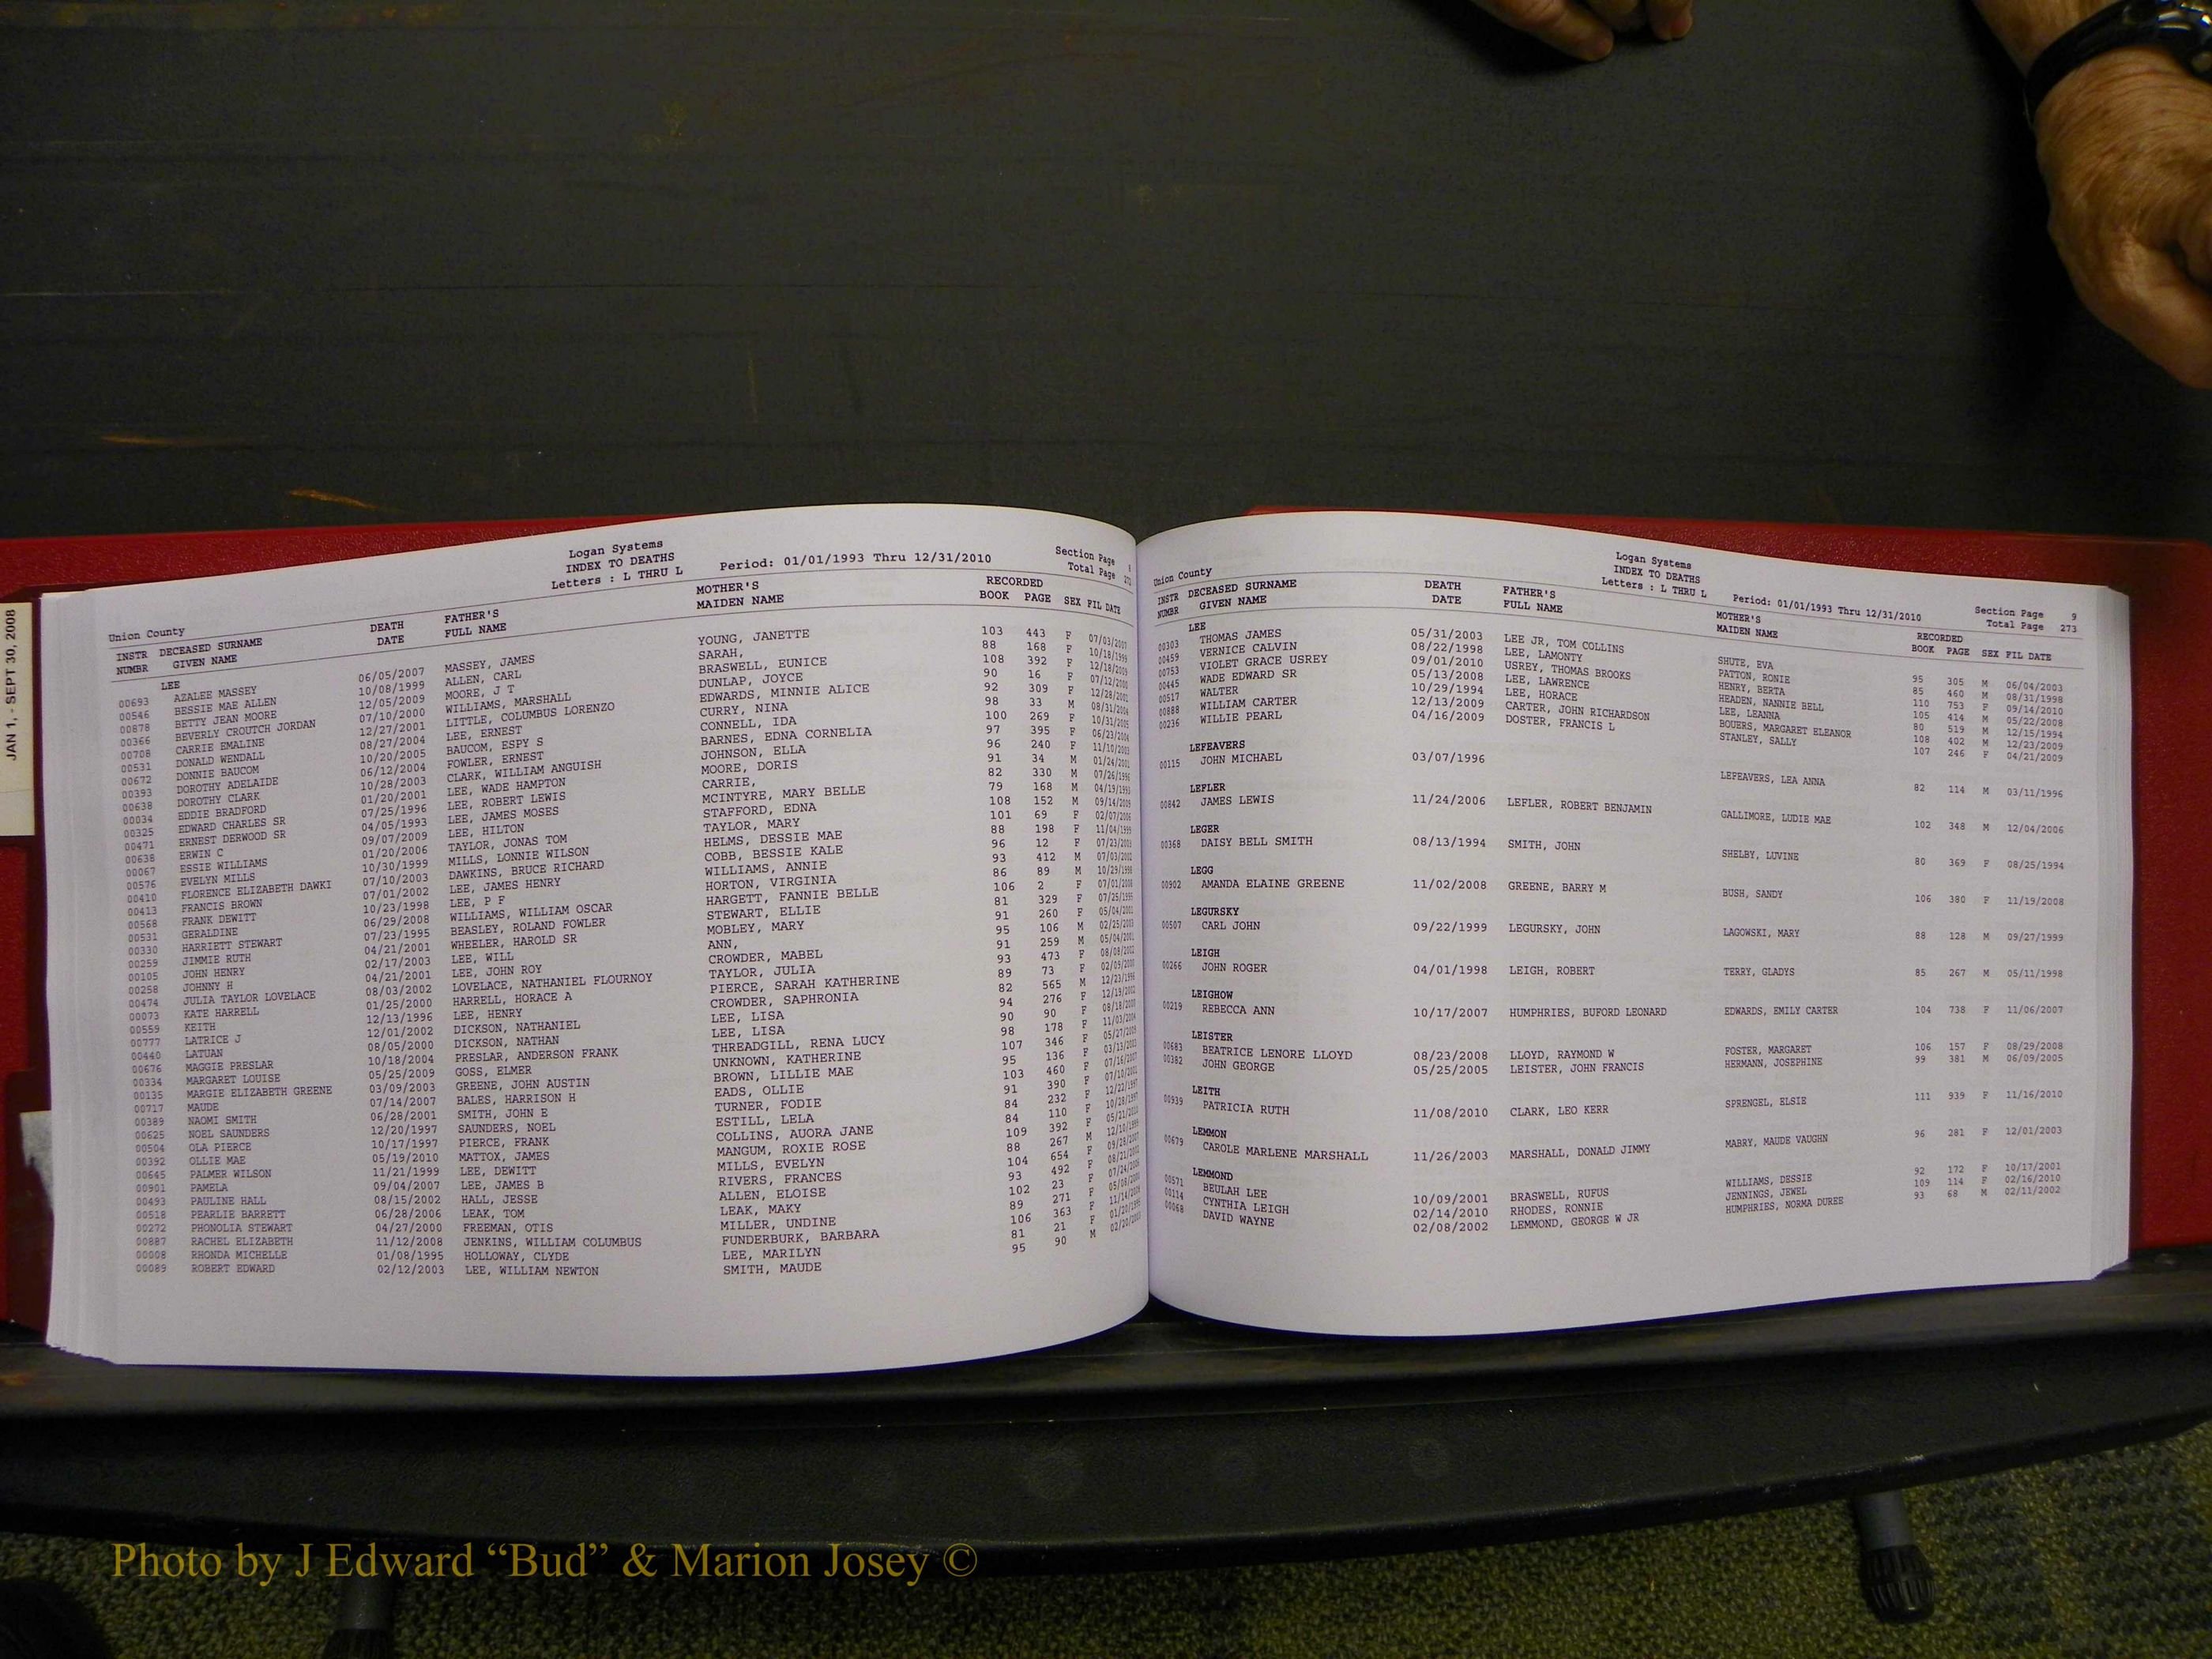 JAN 1, - SEPT 30, 2008
Union County
Logan Systems
INDEX TO DEATHS
Letters : L THRU L
Period: 01/01/1993 Thru 12/31/2010
Section Page
Total Page
INSTR DECEASED SURNAME DEATH FATHER'S MOTHER'S RECORDED
NUMBR GIVEN NAME DATE FULL NAME MAIDEN NAME BOOK PAGE SEX FIL DATE
LEE
00693 AZALEE MASSEY 06/05/2007 MASSEY, JAMES YOUNG, JANETTE 103 443 F 07/03/2007
00546 BESSIE MAE ALLEN 10/08/1999 ALLEN, CARL SARAH, 88 168 F 10/18/1999
00878 BETTY JEAN MOORE 12/05/2009 MOORE, J T BRASWELL, EUNICE 108 392 F 12/18/2009
00366 BEVERLY CROUTCH JORDAN 07/10/2000 WILLIAMS, MARSHALL DUNLAP, JOYCE 90 16 F 07/12/2000
00708 CARRIE EMALINE 12/27/2001 LITTLE, COLUMBUS LORENZO EDWARDS, MINNIE ALICE 92 309 F 12/28/2001
00531 DONALD WENDALL 08/27/2004 LEE, ERNEST CURRY, NINA 98 33 M 08/31/2004
00672 DONNIE BAUCOM 10/20/2005 BAUCOM, ESPY S CONNELL, IDA 100 269 F 10/31/2005
00393 DOROTHY ADELAIDE 06/12/2004 FOWLER, ERNEST BARNES, EDNA CORNELIA 97 395 F 06/23/2004
00638 DOROTHY CLARK 10/28/2003 CLARK, WILLIAM ANGUISH JOHNSON, ELLA 96 240 F 11/10/2003
00034 EDDIE BRADFORD 01/20/2001 LEE, WADE HAMPTON MOORE, DORIS 91 34 M 01/24/2001
00325 EDWARD CHARLES SR 07/25/1996 LEE, ROBERT LEWIS CARRIE, 82 330 M 07/26/1996
00471 ERNEST DERWOOD SR 04/05/1993 LEE, JAMES MOSES MCINTYRE, MARY BELLE 79 168 M 04/19/1993
00638 ERWIN C 09/07/2009 LEE, HILTON STAFFORD, EDNA 108 152 M 09/14/2009
00067 ESSIE WILLIAMS 01/20/2006 TAYLOR, JONAS TOM TAYLOR, MARY 101 69 F 02/07/2006
00576 EVELYN MILLS 10/30/1999 MILLS, LONNIE WILSON HELMS, DESSIE MAE 88 198 F 11/04/1999
00410 FLORENCE ELIZABETH DAWKI 07/10/2003 DAWKINS, BRUCE RICHARD COBB, BESSIE KALE 96 12 F 07/23/2003
00413 FRANCIS BROWN 07/01/2002 LEE, JAMES HENRY WILLIAMS, ANNIE 93 412 M 07/03/2002
00568 FRANK DEWITT 10/23/1998 LEE, P F HORTON, VIRGINIA 86 89 M 10/29/1998
00531 GERALDINE 06/29/2008 WILLIAMS, WILLIAM OSCAR HARGETT, FANNIE BELLE 106 2 F 07/01/2008
00330 HARRIETT STEWART 07/23/1995 BEASLEY, ROLAND FOWLER STEWART, ELLIE 81 329 F 07/25/1995
00259 JIMMIE RUTH 04/21/2001 WHEELER, HAROLD SR MOBLEY, MARY 91 260 F 05/04/2001
00105 JOHN HENRY 02/17/2003 LEE, WILL ANN, 95 106 M 02/25/2003
00258 JOHNNY H 04/21/2001 LEE, JOHN ROY CROWDER, MABEL 91 259 M 05/04/2001
00474 JULIA TAYLOR LOVELACE 08/03/2002 LOVELACE, NATHANIEL FLOURNOY TAYLOR, JULIA 93 473 F 08/08/2002
00073 KATE HARRELL 01/25/2000 HARRELL, HORACE A PIERCE, SARAH KATHERINE 89 73 F 02/09/2000
00559 KEITH 12/13/1996 LEE, HENRY CROWDER, SAPHRONIA 82 565 M 12/23/1996
00777 LATRICE J 12/01/2002 DICKSON, NATHANIEL LEE, LISA 94 276 F 12/19/2002
00440 LATUAN 08/05/2000 DICKSON, NATHAN LEE, LISA 90 90 F 08/18/2000
00676 MAGGIE PRESLAR 10/18/2004 PRESLAR, ANDERSON FRANK THREADGILL, RENA LUCY 98 178 F 11/03/2004
00334 MARGARET LOUISE 05/25/2009 GOSS, ELMER UNKNOWN, KATHERINE 107 346 F 05/27/2009
00135 MARGIE ELIZABETH GREENE 03/09/2003 GREENE, JOHN AUSTIN BROWN, LILLIE MAE 95 136 F 03/13/2003
00717 MAUDE 07/14/2007 BALES, HARRISON H EADS, OLLIE 103 460 F 07/16/2007
00389 NAOMI SMITH 06/28/2001 SMITH, JOHN E TURNER, FODIE 91 390 F 07/10/2001
00625 NOEL SAUNDERS 12/20/1997 SAUNDERS, NOEL ESTILL, LELA 84 232 F 12/22/1997
00504 OLA PIERCE 10/17/1997 PIERCE, FRANK COLLINS, AUORA JANE 84 110 F 10/28/1997
00392 OLLIE MAE 05/19/2010 MATTOX, JAMES MANGUM, ROXIE ROSE 109 392 F 05/21/2010
00645 PALMER WILSON 11/21/1999 LEE, DEWITT MILLS, EVELYN 88 267 M 12/10/1999
00901 PAMELA 09/04/2007 LEE, JAMES B RIVERS, FRANCES 104 654 F 09/28/2007
00493 PAULINE HALL 08/15/2002 HALL, JESSE ALLEN, ELOISE 93 492 F 08/21/2002
00518 PEARLIE BARRETT 06/28/2006 LEAK, TOM LEAK, MAKY 102 23 F 07/24/2006
00272 PHONOLIA STEWART 04/27/2000 FREEMAN, OTIS MILLER, UNDINE 89 271 F 05/08/2000
00887 RACHEL ELIZABETH 11/12/2008 JENKINS, WILLIAM COLUMBUS FUNDERBURK, BARBARA 106 363 F 11/14/2008
00008 RHONDA MICHELLE 01/08/1995 HOLLOWAY, CLYDE LEE, MARILYN 81 21 F 01/20/1995
00089 ROBERT EDWARD 02/12/2003 LEE, WILLIAM NEWTON SMITH, MAUDE 95 90 M 02/20/2003
Union County
Logan Systems
INDEX TO DEATHS
Letters : L THRU L
Period: 01/01/1993 Thru 12/31/2010
Section Page 9
Total Page 273
INSTR DECEASED SURNAME DEATH FATHER'S MOTHER'S RECORDED
NUMBR GIVEN NAME DATE FULL NAME MAIDEN NAME BOOK PAGE SEX FIL DATE
LEE
00303 THOMAS JAMES 05/31/2003 LEE JR, TOM COLLINS SHUTE, EVA 95 305 M 06/04/2003
00459 VERNICE CALVIN 08/22/1998 LEE, LAMONTY PATTON, RONIE 85 460 M 08/31/1998
00753 VIOLET GRACE USREY 09/01/2010 USREY, THOMAS BROOKS HENRY, BERTA 110 753 F 09/14/2010
00445 WADE EDWARD SR 05/13/2008 LEE, LAWRENCE HEADEN, NANNIE BELL 105 414 M 05/22/2008
00517 WALTER 10/29/1994 LEE, HORACE LEE, LEANNA 80 519 M 12/15/1994
00888 WILLIAM CARTER 12/13/2009 CARTER, JOHN RICHARDSON BOUERS, MARGARET ELEANOR 108 402 M 12/23/2009
00236 WILLIE PEARL 04/16/2009 DOSTER, FRANCIS L STANLEY, SALLY 107 246 F 04/21/2009
LEFEAVERS
00115 JOHN MICHAEL 03/07/1996 LEFEAVERS, LEA ANNA 82 114 M 03/11/1996
LEFLER
00842 JAMES LEWIS 11/24/2006 LEFLER, ROBERT BENJAMIN GALLIMORE, LUDIE MAE 102 348 M 12/04/2006
LEGER
00368 DAISY BELL SMITH 08/13/1994 SMITH, JOHN SHELBY, LUVINE 80 369 F 08/25/1994
LEGG
00902 AMANDA ELAINE GREENE 11/02/2008 GREENE, BARRY M BUSH, SANDY 106 380 F 11/19/2008
LEGURSKY
00507 CARL JOHN 09/22/1999 LEGURSKY, JOHN LAGOWSKI, MARY 88 128 M 09/27/1999
LEIGH
00266 JOHN ROGER 04/01/1998 LEIGH, ROBERT TERRY, GLADYS 85 267 M 05/11/1998
LEIGHOW
00219 REBECCA ANN 10/17/2007 HUMPHRIES, BUFORD LEONARD EDWARDS, EMILY CARTER 104 738 F 11/06/2007
LEISTER
00683 BEATRICE LENORE LLOYD 08/23/2008 LLOYD, RAYMOND W FOSTER, MARGARET 106 157 F 08/29/2008
00382 JOHN GEORGE 05/25/2005 LEISTER, JOHN FRANCIS HERMANN, JOSEPHINE 99 381 M 06/09/2005
LEITH
00939 PATRICIA RUTH 11/08/2010 CLARK, LEO KERR SPRENGEL, ELSIE 111 939 F 11/16/2010
LEMMON
00679 CAROLE MARLENE MARSHALL 11/26/2003 MARSHALL, DONALD JIMMY MABRY, MAUDE VAUGHN 96 281 F 12/01/2003
LEMMOND
00571 BEULAH LEE 10/09/2001 BRASWELL, RUFUS WILLIAMS, DESSIE 92 172 F 10/17/2001
00114 CYNTHIA LEIGH 02/14/2010 RHODES, RONNIE JENNINGS, JEWEL 109 114 F 02/16/2010
00068 DAVID WAYNE 02/08/2002 LEMMOND, GEORGE W JR HUMPHRIES, NORMA DUREE 93 68 M 02/11/2002
Photo by J Edward “Bud” & Marion Josey ©